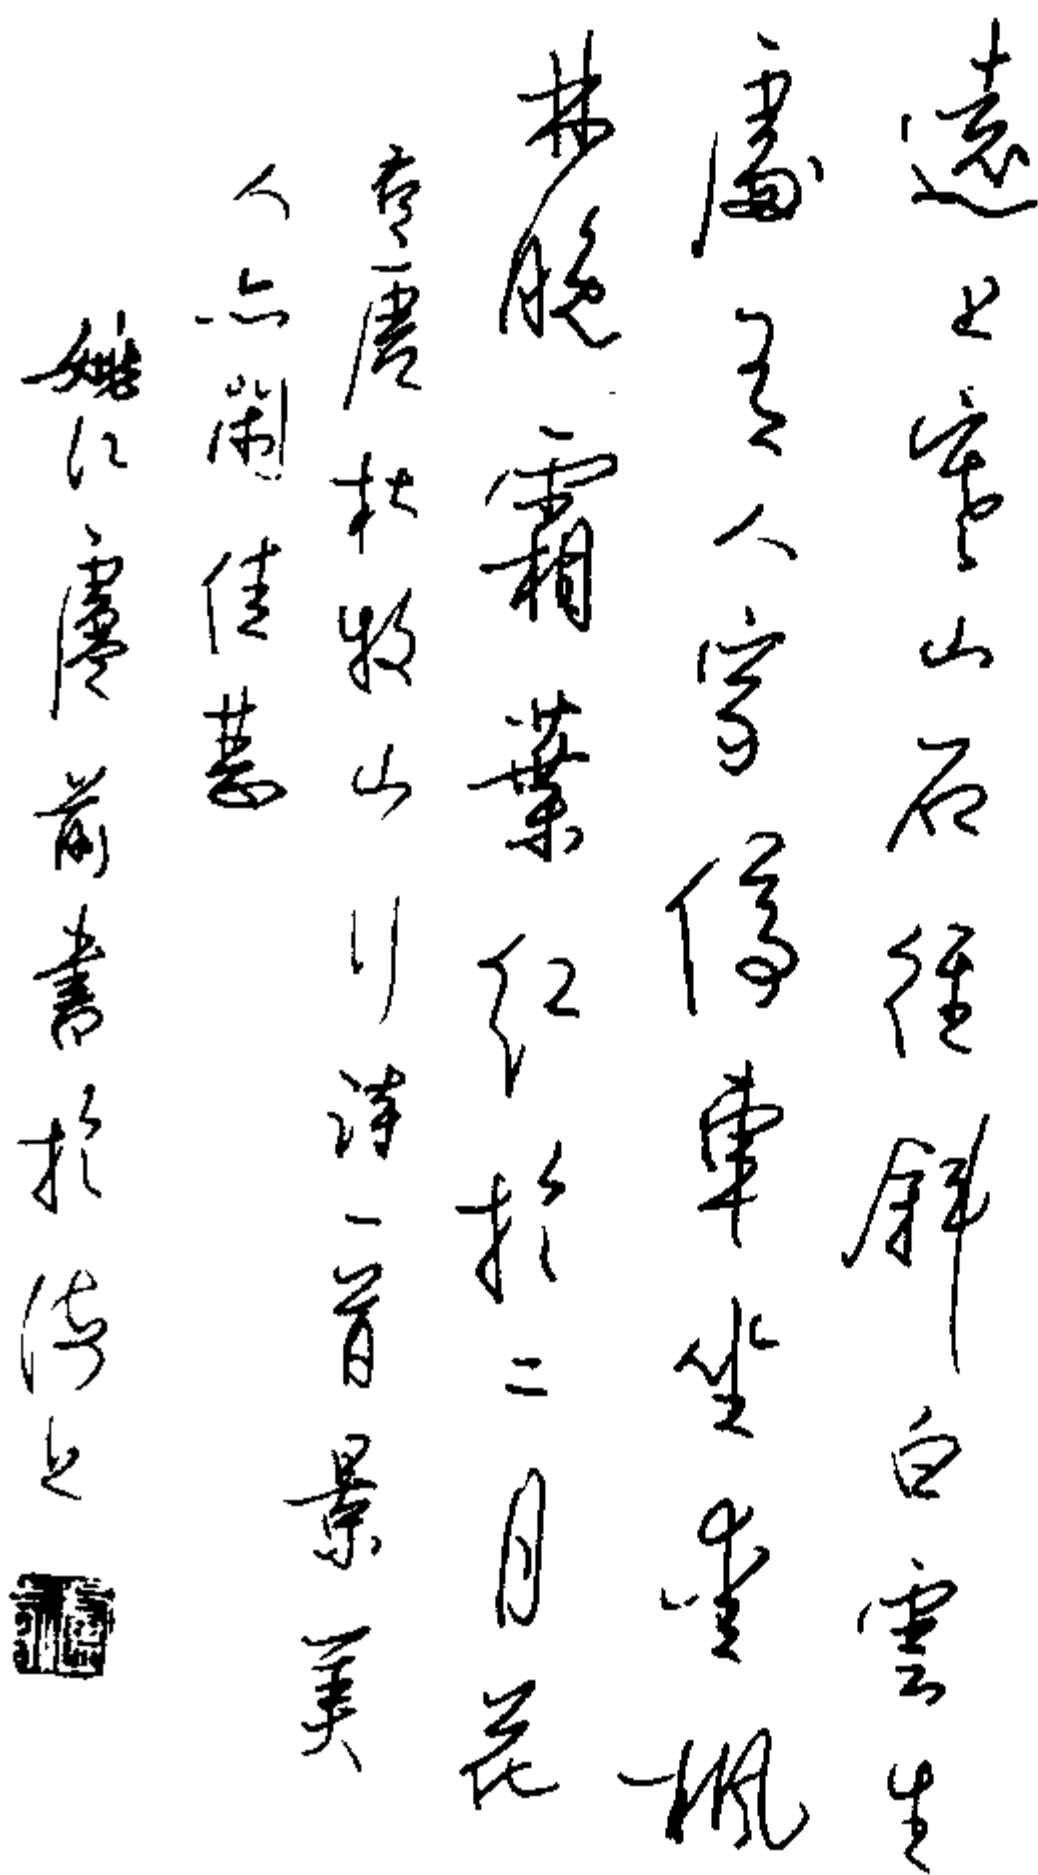 遠上寒山石徑斜白雲生
處有人家停車坐愛楓
林晚霜葉紅於二月花
唐杜牧山行詩一首景美
人亦閑佳甚
江盧前書於上